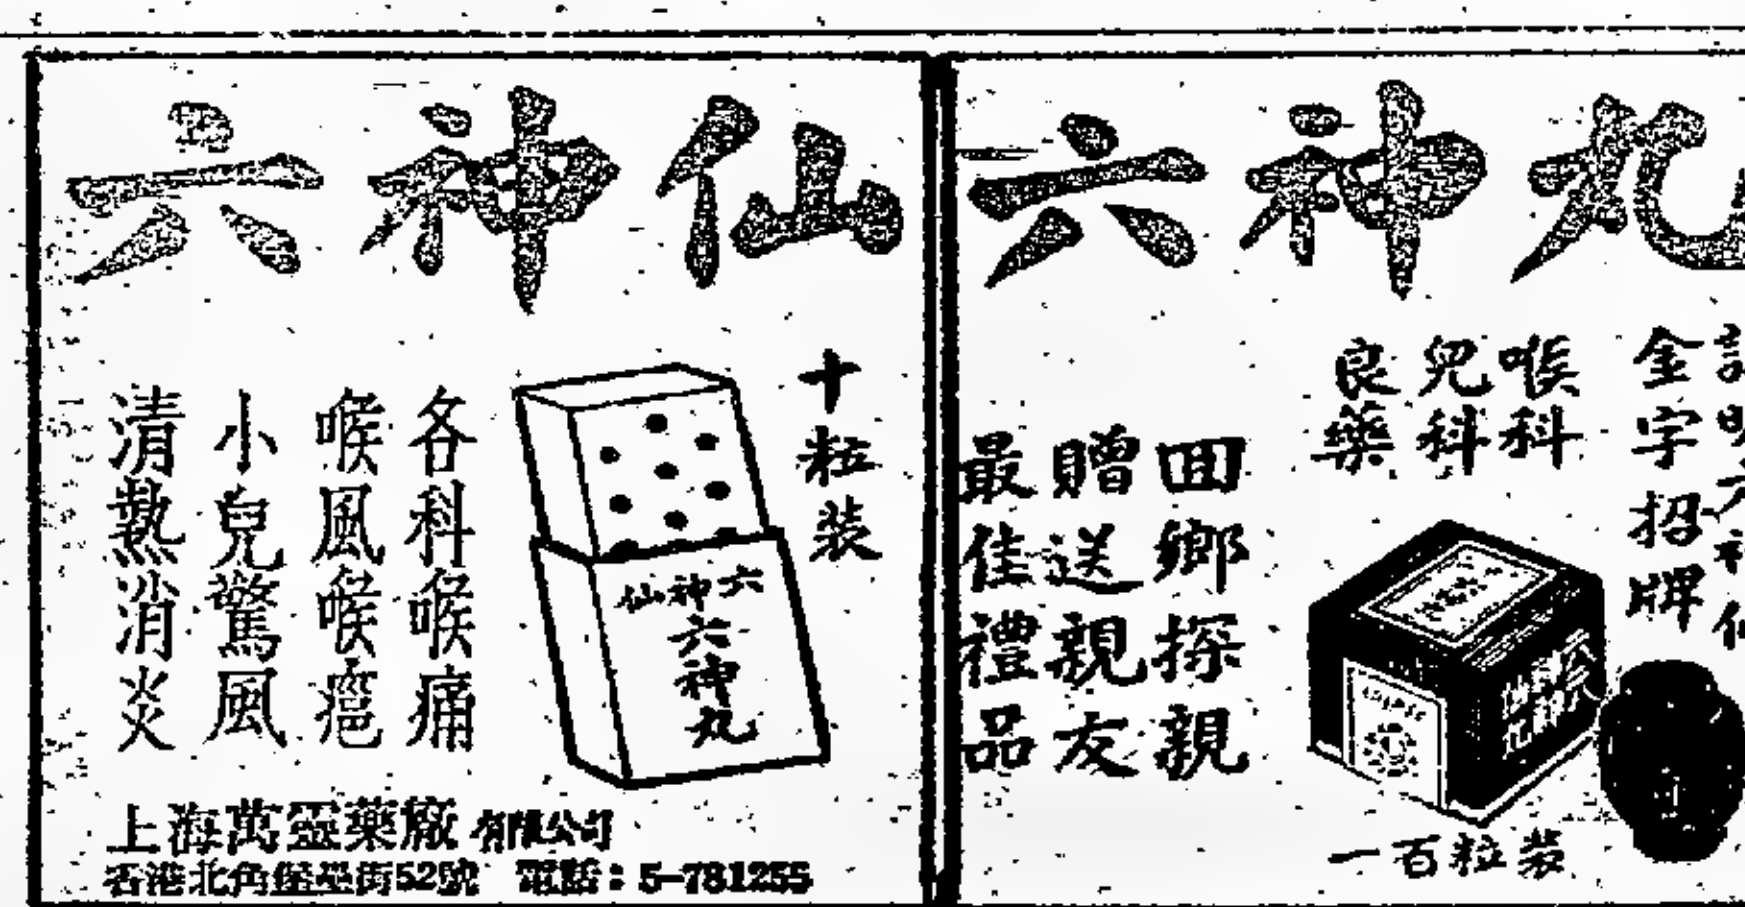 六神仙
十粒裝
各科喉痛
喉風喉瘡
小兒驚風
清熱消炎
六神仙
六神丸
上海萬靈藥廠有限公司
香港北角堡壘街52號 電話：5-781255
六神丸
金字招牌
喉科
兒科
良藥
囬鄉探親
贈送親友
最佳禮品
一百粒裝